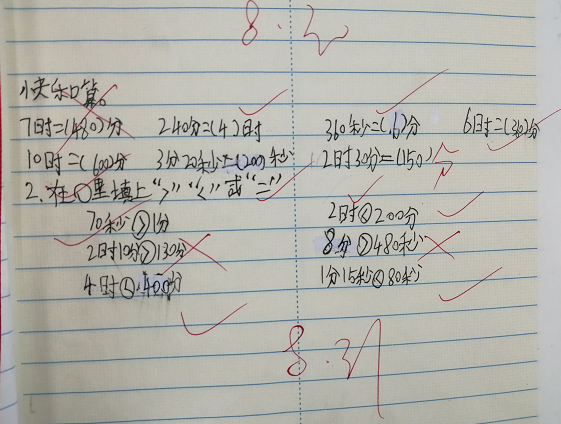 8.30
小快乐口算。
7时=(480)分 240分=(4)时 360秒=(6)分 6时=(36)分
10时=(600)分 3分20秒=(200)秒 2时30分=(150)分
2.在○里填上“>”“<”或“=”
70秒>1分 2时<200分
2时10分>130分 8分>480秒
4时<400分 1分15秒<80秒
8.31